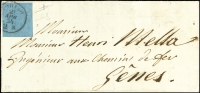 Monsieur
Monsieur Henri Mella
Ingénieur aux Chemins de fer
Gênes.